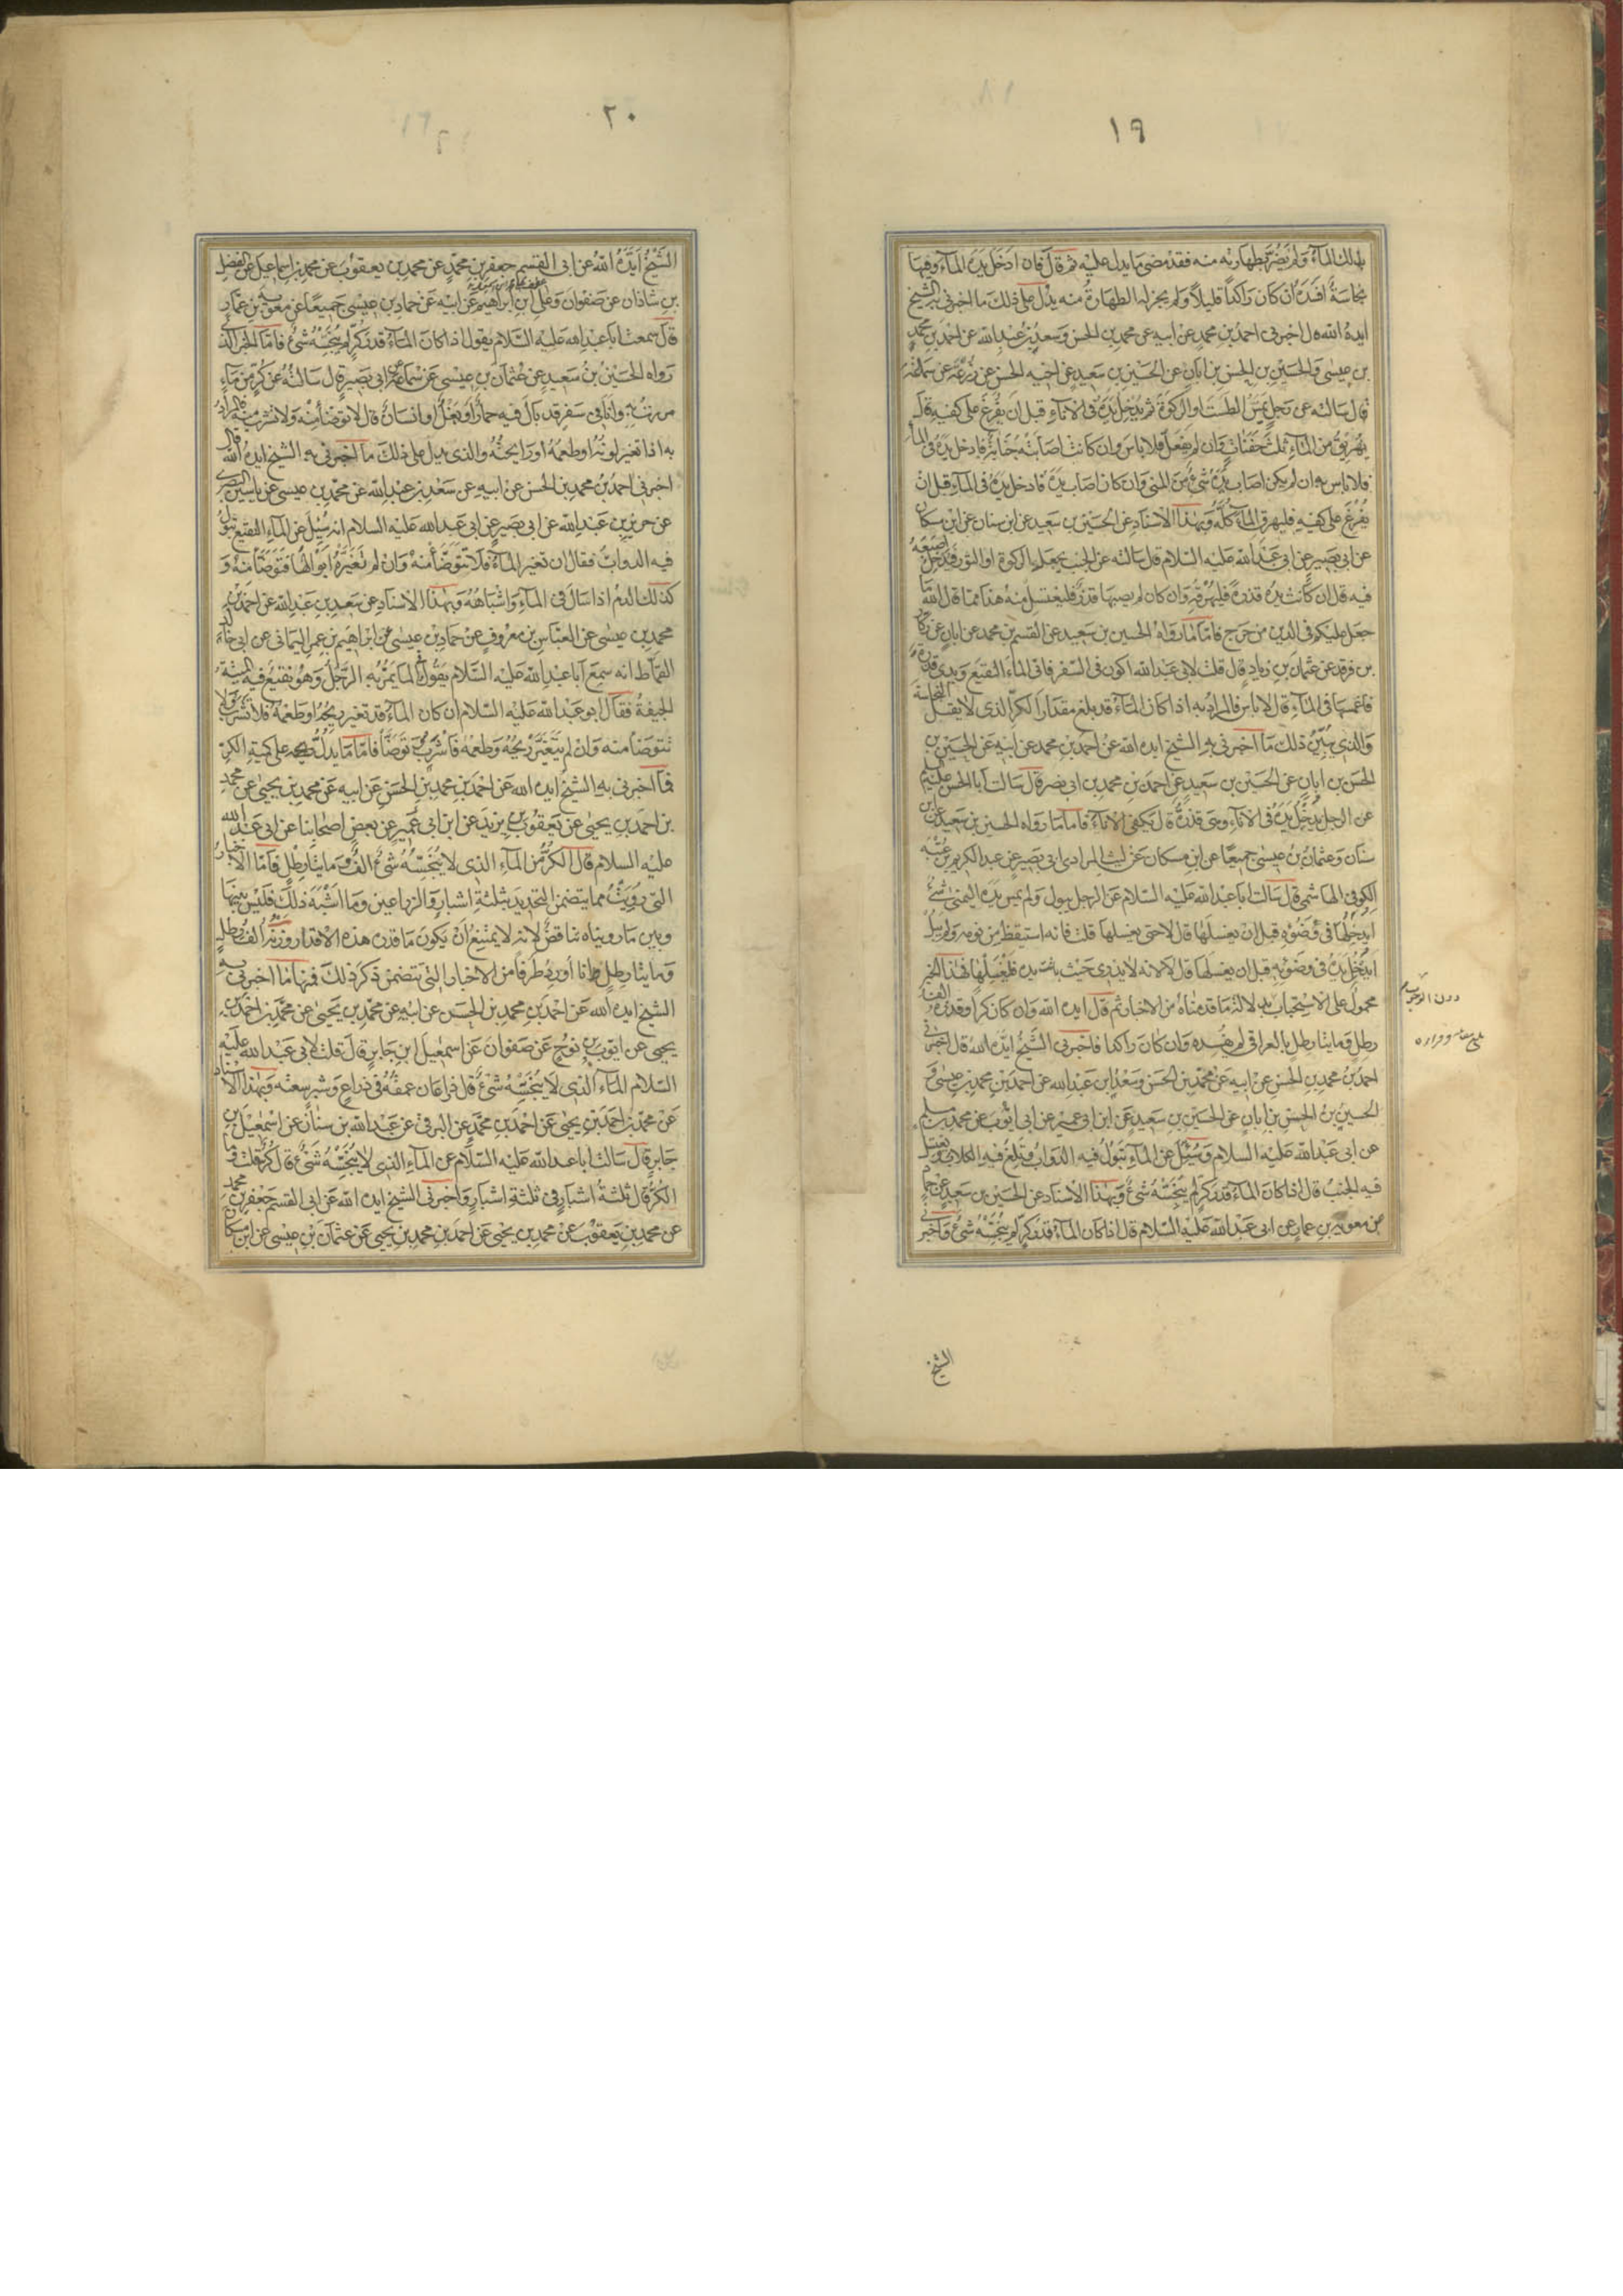 ١٩
بذلك المآء ولم يضر بطهارته منه فقد مضى ما يدل عليه ثم قال فان ادخل يده المآء وفيها
نجاسة افسده ان كان راكدا قليلا ولم يجز له الطهارة منه يدل على ذلك ما اخبرنى به الشيخ
ايده الله قال اخبرنى احمد بن محمد عن ابيه عن محمد بن الحسن وسعد بن عبد الله عن احمد بن محمد
بن عيسى والحسين بن الحسن بن ابان عن الحسين بن سعيد عن اخيه الحسن عن زرعة عن سماعة
قال سالته عن رجل يمس الطست او الركوة ثم يدخل يده فى الاناء قبل ان يفرغ على كفيه قال
يهريق من المآء ثلث حفنات وان لم يفعل فلا باس وان كانت اصابته جنابة فادخل يده فى المآء
فلا باس به ان لم يكن اصاب يده شئ من المنى وان كان اصاب يده فادخل يده فى المآء قبل ان
يفرغ على كفيه فليهرق المآء كله وبهذا الاسناد عن الحسين بن سعيد عن ابن سنان عن ابن مسكان
عن ابى بصير عن ابى عبد الله عليه السلام قال سالته عن الجنب يجعل الركوة او التور فيدخل اصبعه
فيه قال ان كانت يده قذرة فليهرقه وان كان لم يصبها قذر فليغتسل منه هذا مما قال الله تعالى ما
جعل عليكم فى الدين من حرج فاما ما رواه الحسين بن سعيد عن القسم بن محمد عن ابان عن زكار
بن فرقد عن عثمان بن زياد قال قلت لابى عبد الله اكون فى السفر فاتى المآء النقيع ويدى قذرة
فاغمسها فى المآء قال لا باس فالمراد به اذا كان المآء قد بلغ مقدار الكر الذى لا يقبل النجاسة
والذى يبين ذلك ما اخبرنى به الشيخ ايده الله عن احمد بن محمد عن ابيه عن الحسين بن
الحسن بن ابان عن الحسين بن سعيد عن احمد بن محمد بن ابى نصر قال سالت ابا الحسن عليه السلام
عن الرجل يدخل يده فى الاناء وهى قذرة قال يكفى الاناء فاما ما رواه الحسين بن سعيد عن ابن
سنان وعثمان بن عيسى جميعا عن ابن مسكان عن ليث المرادى ابى بصير عن عبد الكريم بن عتبة
الكوفى الهاشمى قال سالت ابا عبد الله عليه السلام عن الرجل يبول ولم يمس يده اليمنى شئ
ايدخلها فى وضوئه قبل ان يغسلها قال لا حتى يغسلها قلت فانه استيقظ من نومه ولم يبل
ايدخل يده فى وضوئه قبل ان يغسلها قال لا لانه لا يدرى حيث باتت يده فليغسلها فهذا الخبر
محمول على الاستحباب بدلالة ما قدمناه من الاخبار ثم قال ايده الله وان كان كرا وقدره الف
رطل ومايتا رطل بالعراقى لم يفسده وان كان راكدا فاخبرنى الشيخ ايده الله قال اخبرنى
احمد بن محمد بن الحسن عن ابيه عن محمد بن الحسن وسعد ابن عبد الله عن احمد بن محمد بن عيسى و
الحسين بن الحسن بن ابان عن الحسين بن سعيد عن ابن ابى عمير عن ابى ايوب عن محمد بن مسلم
عن ابى عبد الله عليه السلام وسئل عن المآء تبول فيه الدواب وتلغ فيه الكلاب ويغتسل
فيه الجنب قال اذا كان المآء قدر كر لم ينجسه شئ وبهذا الاسناد عن الحسين بن سعيد عن حماد
عن معوية بن عمار عن ابى عبد الله عليه السلام قال اذا كان المآء قدر كر لم ينجسه شئ واخبرنى
دون الوجوب
الشيخ
٢٠
الشيخ ايده الله عن ابى القسم جعفر بن محمد عن محمد بن يعقوب عن محمد بن اسماعيل عن الفضل
بن شاذان عن صفوان وعلى ابن ابراهيم عن ابيه عن حماد بن عيسى جميعا عن معوية بن عمار
قال سمعت ابا عبد الله عليه السلام يقول اذا كان المآء قدر كر لم ينجسه شئ فاما الخبر الذى
رواه الحسين بن سعيد عن عثمان بن عيسى عن سماعة عن ابى بصير قال سالته عن كر من ماء
مررت به وانا فى سفر قد بال فيه حمار او بغل او انسان قال لا توضأ منه ولا تشرب منه فالمراد
به اذا تغير لونه او طعمه او رايحته والذى يدل على ذلك ما اخبرنى به الشيخ ايده الله قال
اخبرنى احمد بن محمد بن الحسن عن ابيه عن سعد بن عبد الله عن محمد بن عيسى عن ياسين البصرى
عن حريز بن عبد الله عن ابى بصير عن ابى عبد الله عليه السلام انه سئل عن المآء النقيع تبول
فيه الدواب فقال ان تغير المآء فلا تتوضأ منه وان لم تغيره ابوالها فتوضأ منه و
كذلك الدم اذا سال فى المآء واشباهه وبهذا الاسناد عن سعد بن عبد الله عن احمد بن
محمد بن عيسى عن العباس بن معروف عن حماد بن عيسى عن ابراهيم بن عمر اليمانى عن ابى خالد
القماط انه سمع ابا عبد الله عليه السلام يقول فى المآء يمر به الرجل وهو نقيع فيه الميتة
الجيفة فقال ابو عبد الله عليه السلام ان كان المآء قد تغير ريحه او طعمه فلا تشرب ولا
تتوضأ منه وان لم يتغير ريحه وطعمه فاشرب وتوضأ فاما ما يدل على كمية الكر
فما اخبرنى به الشيخ ايده الله عن احمد بن محمد بن الحسن عن ابيه عن محمد بن يحيى عن محمد
بن احمد بن يحيى عن يعقوب بن يزيد عن ابن ابى عمير عن بعض اصحابنا عن ابى عبد الله
عليه السلام قال الكر من المآء الذى لا ينجسه شئ الف ومايتا رطل فاما الاخبار
التى رويت مما يتضمن التحديد بثلثة اشبار والذراعين وما اشبه ذلك فليس بينها
وبين ما رويناه تناقض لانه لا يمتنع ان يكون ما قدره هذه الاقدار وزنه الف رطل
ومايتا رطل وانا اورد طرفا من الاخبار التى تتضمن ذكر ذلك فمنها ما اخبرنى به
الشيخ ايده الله عن احمد بن محمد بن الحسن عن ابيه عن محمد بن يحيى عن محمد بن احمد بن
يحيى عن ايوب بن نوح عن صفوان عن اسمعيل ابن جابر قال قلت لابى عبد الله عليه
السلام المآء الذى لا ينجسه شئ قال ذراعان عمقه فى ذراع وشبر سعته وبهذا الاسناد
عن محمد بن احمد بن يحيى عن احمد بن محمد عن البرقى عن عبد الله بن سنان عن اسمعيل بن
جابر قال سالت ابا عبد الله عليه السلام عن المآء الذى لا ينجسه شئ قال كر قلت وما
الكر قال ثلثة اشبار فى ثلثة اشبار واخبرنى الشيخ ايده الله عن ابى القسم جعفر بن محمد
عن محمد بن يعقوب عن محمد بن يحيى عن احمد بن محمد بن يحيى عن عثمان بن عيسى عن ابن مسكان